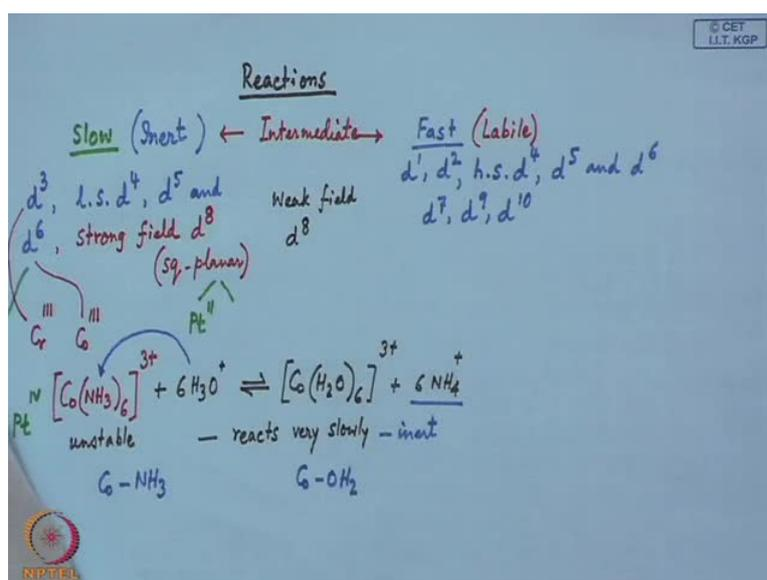 © CET
I.I.T. KGP
Reactions
Slow (Inert) ← Intermediate → Fast (Labile)
d³, l.s. d⁴, d⁵ and
d⁶, strong field d⁸
(sq-planar)
Weak field
d⁸
d¹, d², h.s. d⁴, d⁵ and d⁶
d⁷, d⁹, d¹⁰
Pt^II
Cr^III Co^III
Pt^IV [Co(NH₃)₆]³⁺ + 6H₃O⁺ ⇌ [Co(H₂O)₆]³⁺ + 6NH₄⁺
unstable — reacts very slowly – inert
Co–NH₃ Co–OH₂
NPTEL